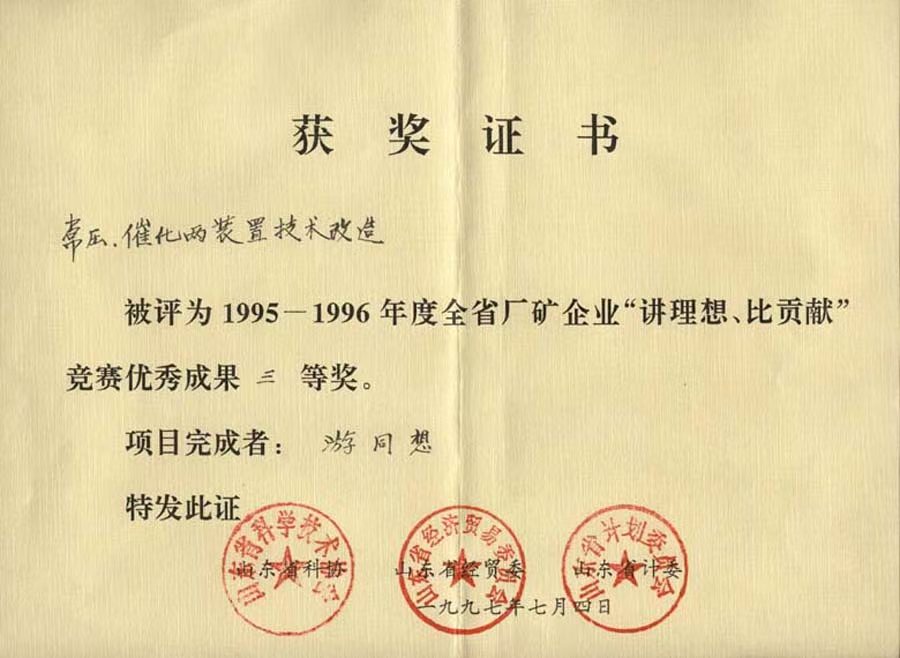 获奖证书
常压、催化两装置技术改造
被评为1995－1996年度全省厂矿企业“讲理想、比贡献”
竞赛优秀成果 三 等奖。
项目完成者： 游同想
特发此证
山东省科学技术协会
山东省经济贸易委员会
山东省计划委员会
山东省科协 山东省经贸委 山东省计委
一九九七年七月四日